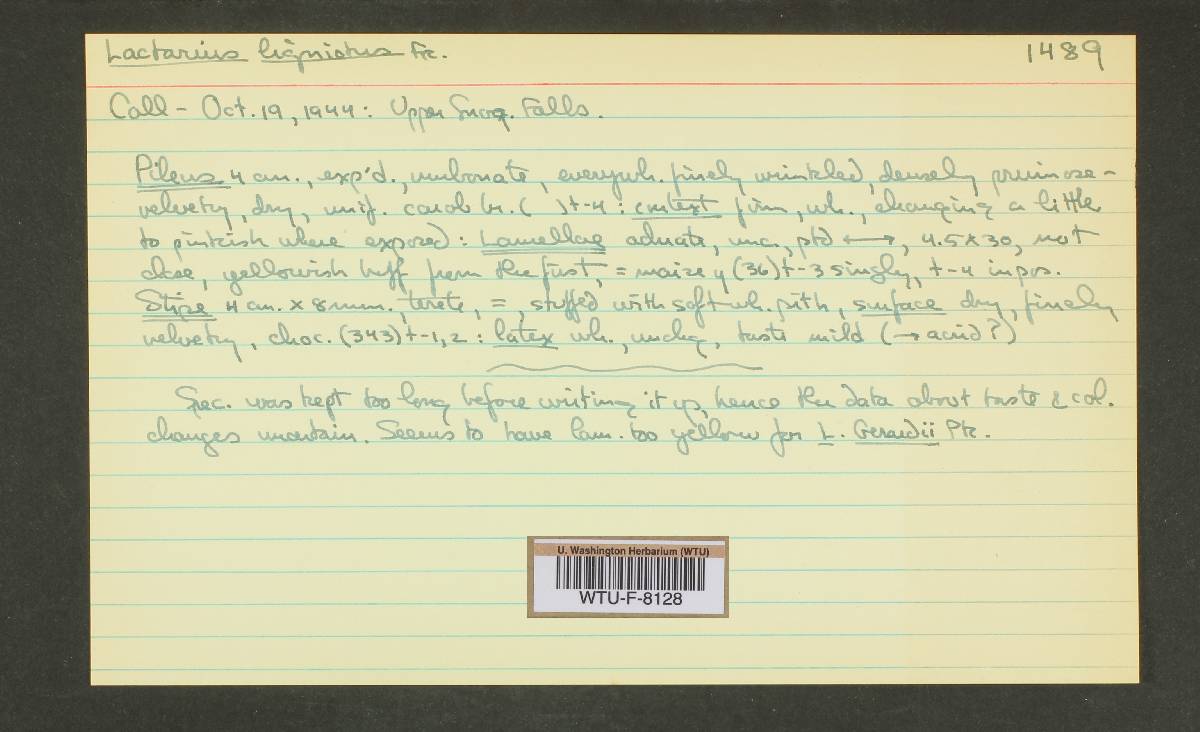 Lactarius ligniotus Fr. 1489
Coll - Oct. 19, 1944: Upper Snoq. Falls.
Pileus 4 cm., exp'd., umbonate, everywh. finely wrinkled, densely pruinose-
velvety, dry, unif. carob br. ( ) t-4: context firm, wh., changing a little
to pinkish where exposed: Lamellae adnate, unc., ptd ⟷, 4.5 x 30, not
close, yellowish buff from the first, = maize y (36) t-3 singly, t-4 in pos.
Stipe 4 cm. x 8 mm., terete, =, stuffed with soft wh. pith, surface dry, finely
velvety, choc. (343) t-1,2: latex wh., unchg, taste mild (→ acrid?)
Spec. was kept too long before writing it up, hence the data about taste & col.
changes uncertain. Seems to have lam. too yellow for L. Gerardii Pk.
U. Washington Herbarium (WTU)
WTU-F-8128